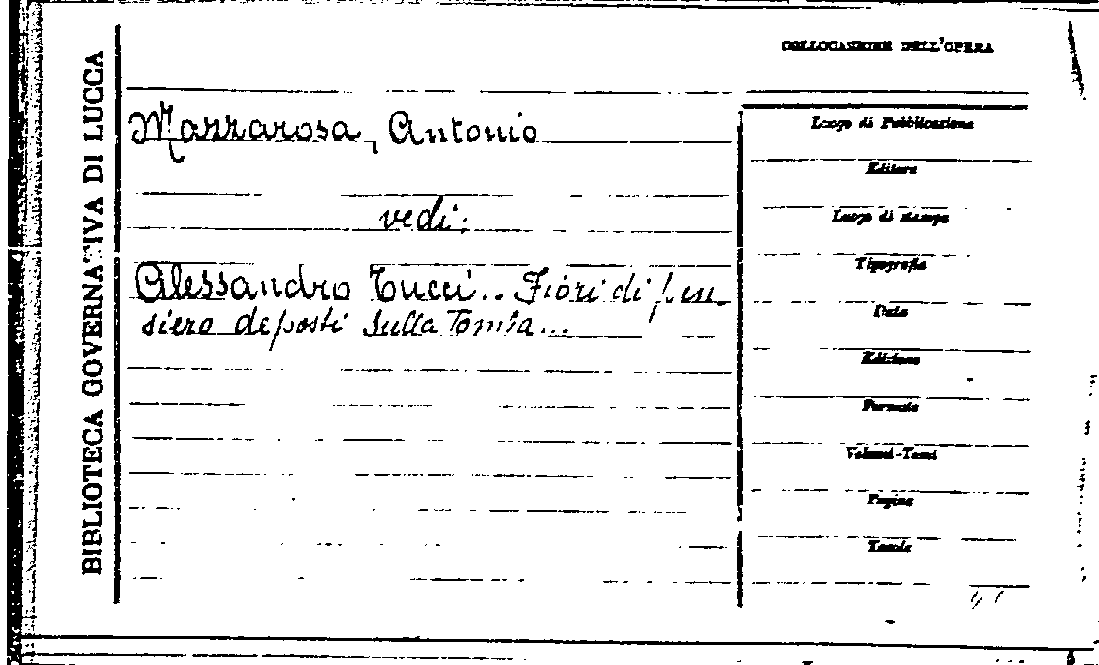 BIBLIOTECA GOVERNATIVA DI LUCCA
COLLOCAZIONE DELL'OPERA
Mazzarosa, Antonio
vedi:
Alessandro Tucci.. Fiori di pen-
siero deposti sulla Tomba...
Luogo di Pubblicazione
Editore
Luogo di stampa
Tipografia
Data
Edizione
Formato
Volumi-Tomi
Pagine
Tavole